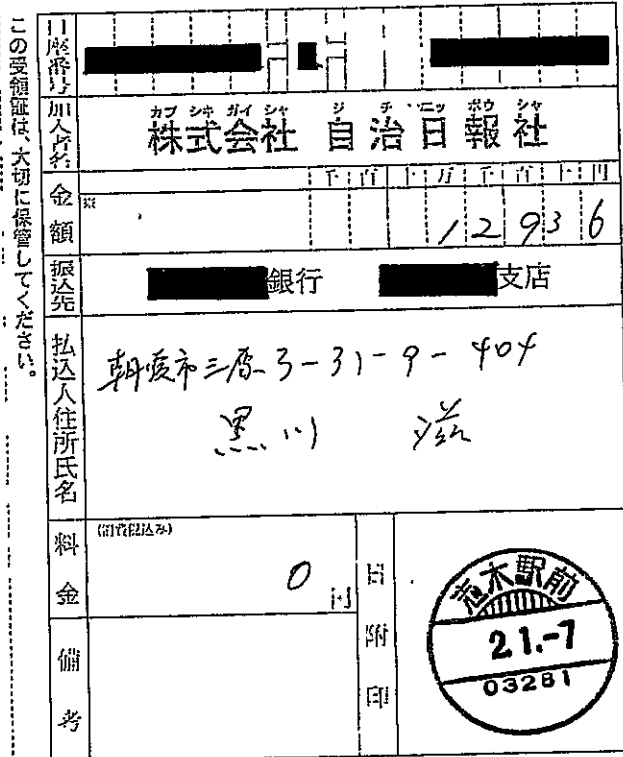 この受領証は、大切に保管してください。
口座番号
加入者名
カブ シキ ガイ シャ ジ チ ニッ ポウ シャ
株式会社 自治日報社
金額
千 百 十 万 千 百 十 円
※
12936
振込先
銀行 支店
払込人住所氏名
朝霞市三原3-31-9-404
黒川 滋
料金
(消費税込み)
0円
備考
日附印
志木駅前
21.-7
03281